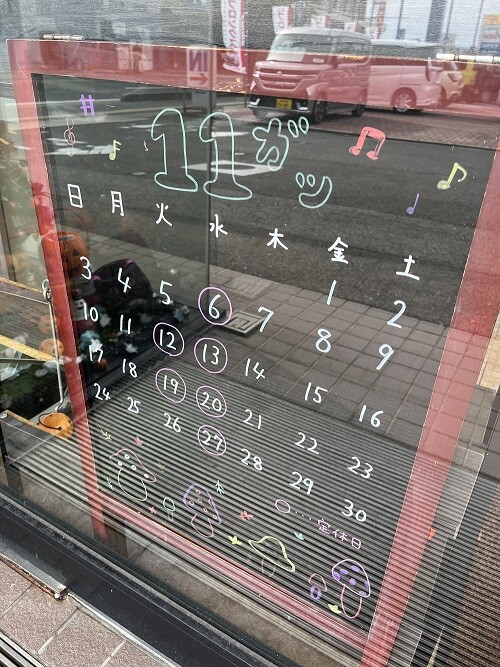 11ガツ
日 月 火 水 木 金 土
1 2
3 4 5 6 7 8 9
10 11 12 13 14 15 16
17 18 19 20 21 22 23
24 25 26 27 28 29 30
○…定休日